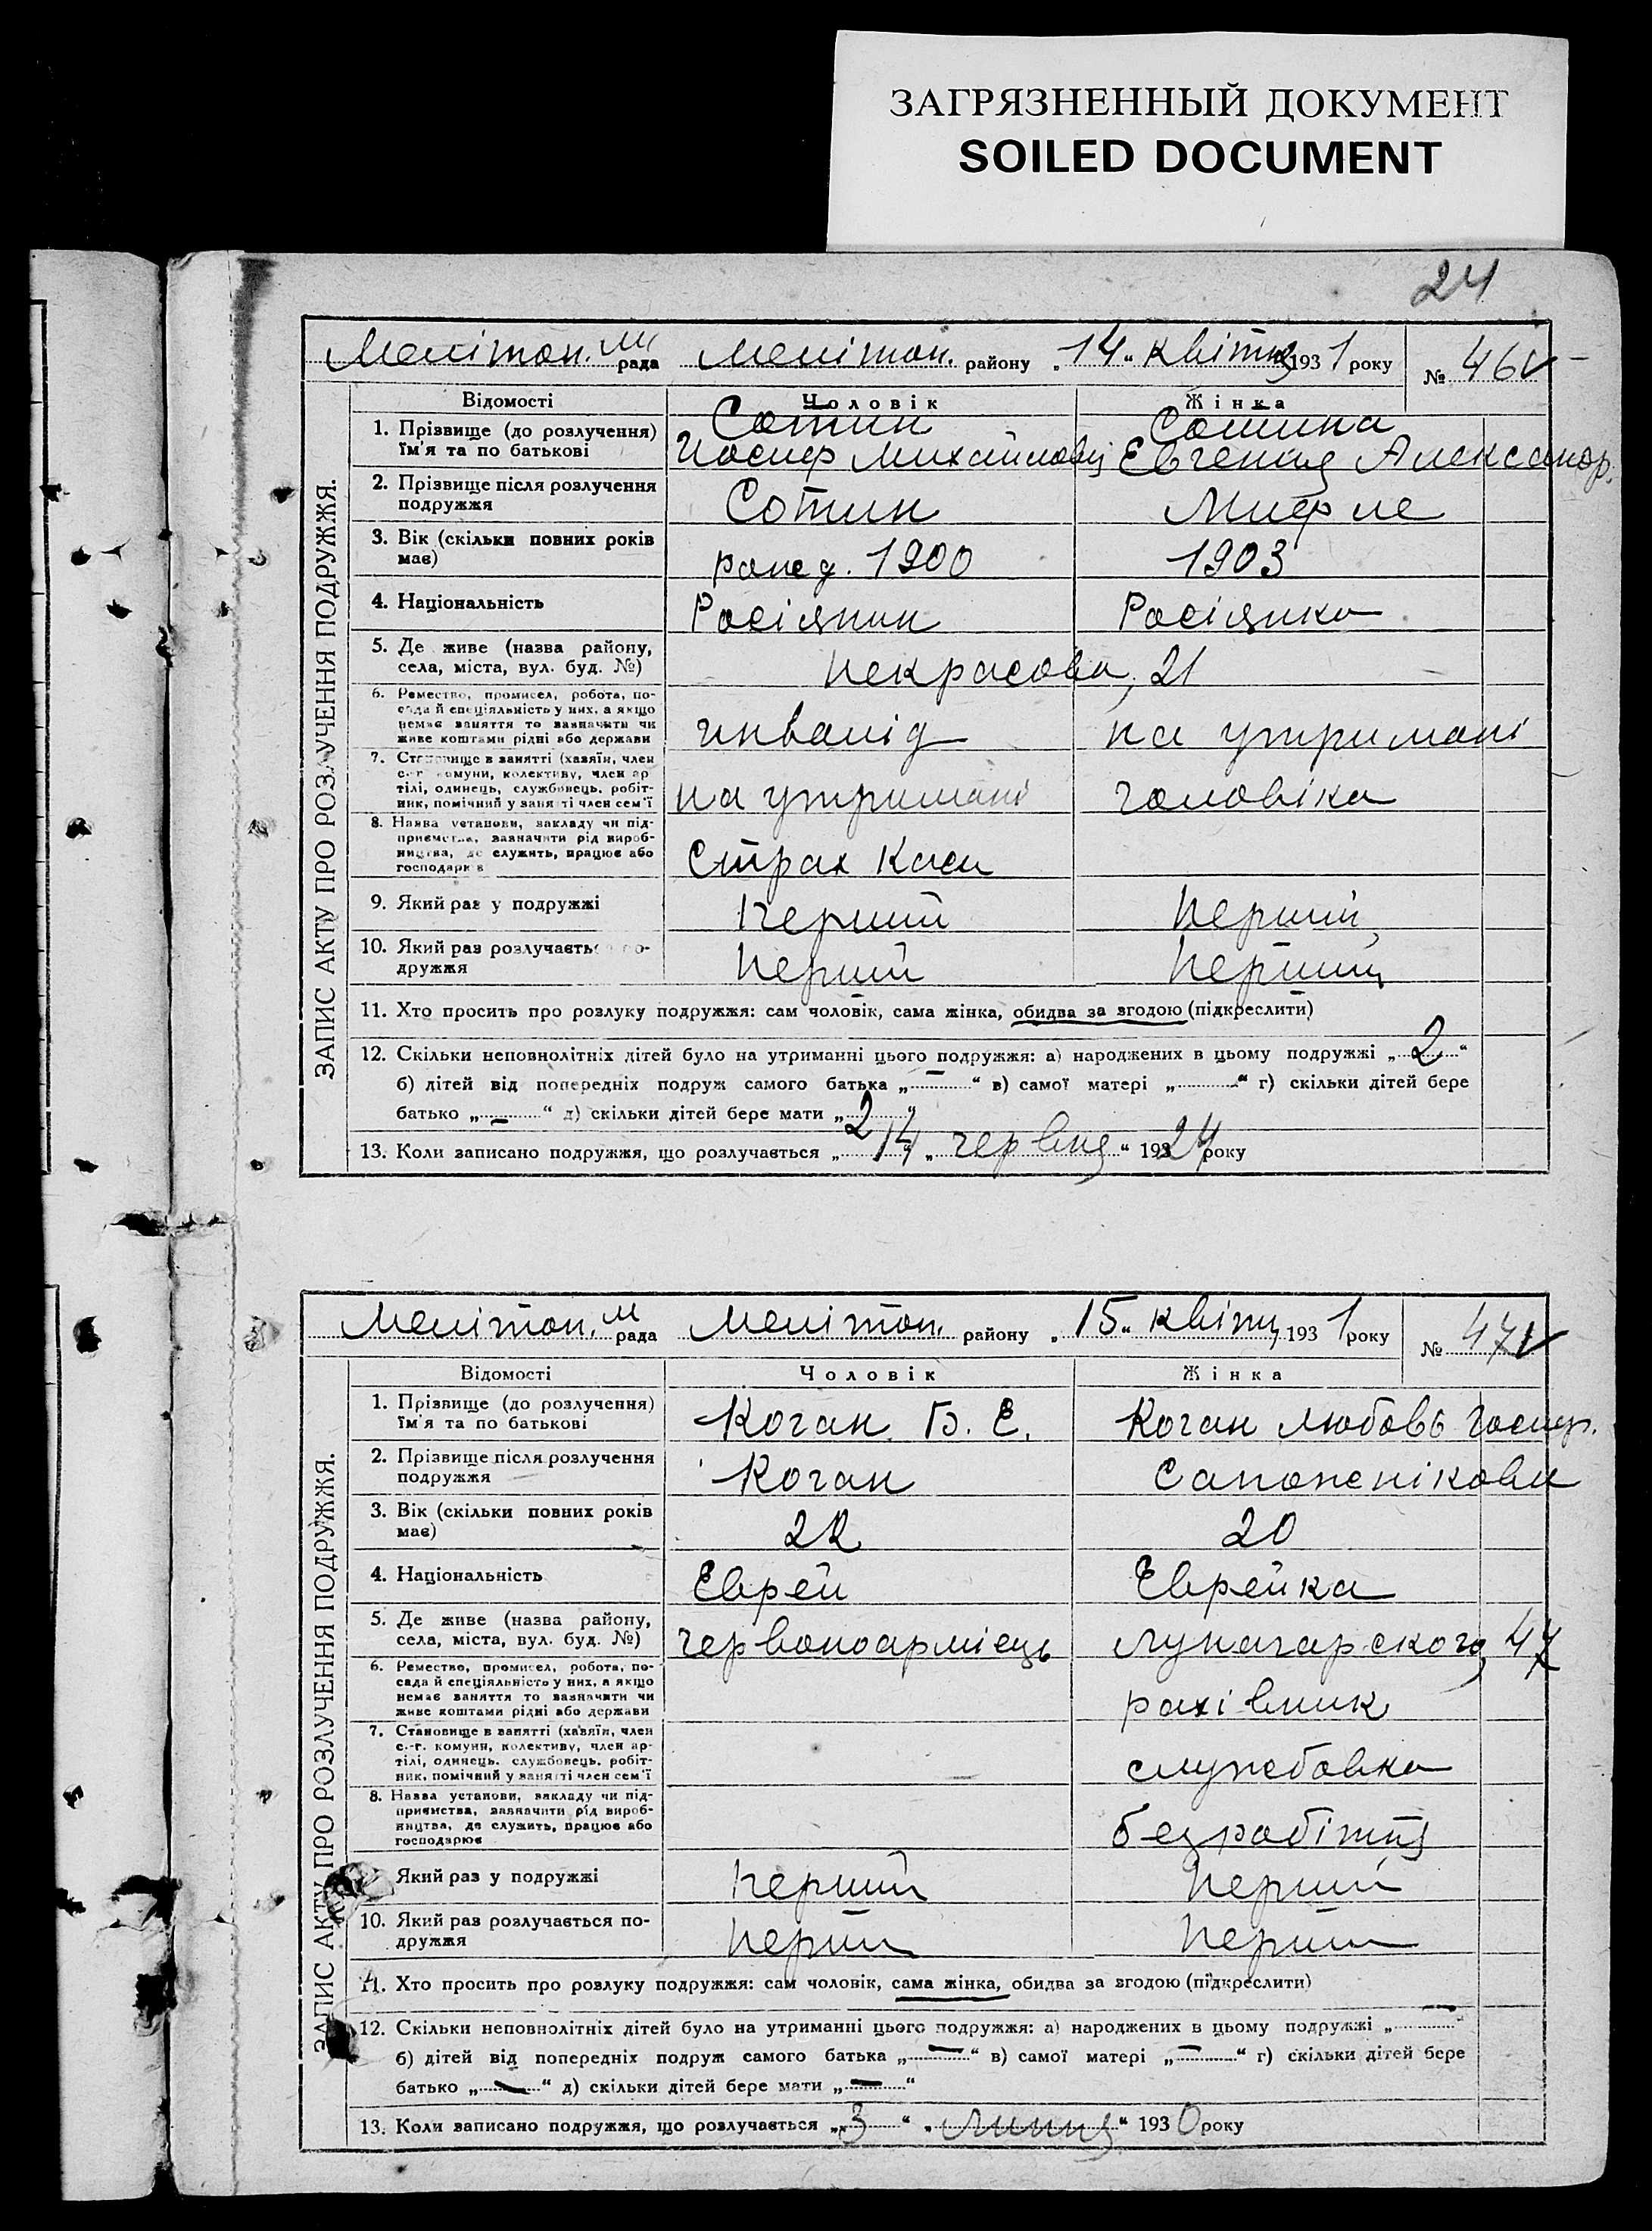 ЗАГРЯЗНЕННЫЙ ДОКУМЕНТ
SOILED DOCUMENT
24
Мелітоп. м рада Мелітоп. району „14“ квітня 1931 року № 46
ЗАПИС АКТУ ПРО РОЗЛУЧЕННЯ ПОДРУЖЖЯ.
Відомості Чоловік Жінка
1. Прізвище (до розлучення) Сотин Сотина
їм'я та по батькові Иосиф Михайлович Евгения Александр.
2. Прізвище після розлучення
подружжя Сотин
3. Вік (скільки повних років
має) 1900 1903
4. Національність Росіянин Росіянка
5. Де живе (назва району,
села, міста, вул. буд. №) Некрасова, 21
6. Ремество, промисел, робота, по-
сада й спеціяльність у них, а якщо
немає заняття то зазначити чи
живе коштами рідні або держави инвалід на утримані
7. Становище в занятті (хазяїн, член
с.-г. комуни, колективу, член ар-
тілі, одинець, службовець, робіт-
ник, помічний у занятті член сем'ї на утримані чоловіка
8. Назва установи, закладу чи під-
приємства, зазначити рід вироб-
ництва, де служить, працює або
господарює Страх Каси
9. Який раз у подружжі Перший Перший
10. Який раз розлучаєть по-
дружжя Перший Перший
11. Хто просить про розлуку подружжя: сам чоловік, сама жінка, обидва за згодою (підкреслити)
12. Скільки неповнолітніх дітей було на утриманні цього подружжя: а) народжених в цьому подружжі „2“
б) дітей від попередніх подруж самого батька „—“ в) самої матері „ “ г) скільки дітей бере
батько „—“ д) скільки дітей бере мати „2“
13. Коли записано подружжя, що розлучається „14“ „червня“ 1924 року
Мелітоп. м рада Мелітоп. району „15“ квітн 1931 року № 47
ЗАПИС АКТУ ПРО РОЗЛУЧЕННЯ ПОДРУЖЖЯ.
Відомості Чоловік Жінка
1. Прізвище (до розлучення)
їм'я та по батькові Коган Б. Е. Коган Любовь
2. Прізвище після розлучення
подружжя Коган Сапожнікова
3. Вік (скільки повних років
має) 22 20
4. Національність Еврей Еврейка
5. Де живе (назва району,
села, міста, вул. буд. №) червоноармієць Луначарского, 47
6. Ремество, промисел, робота, по-
сада й спеціяльність у них, а якщо
немає заняття то зазначити чи
живе коштами рідні або держави рахівник
7. Становище в занятті (хазяїн, член
с.-г. комуни, колективу, член ар-
тілі, одинець, службовець, робіт-
ник, помічний у занятті член сем'ї службовка
8. Назва установи, закладу чи під-
приємства, зазначити рід вироб-
ництва, де служить, працює або
господарює безробітня
Який раз у подружжі Перший Перший
10. Який раз розлучається по-
дружжя Перший Перший
11. Хто просить про розлуку подружжя: сам чоловік, сама жінка, обидва за згодою (підкреслити)
12. Скільки неповнолітніх дітей було на утриманні цього подружжя: а) народжених в цьому подружжі „—“
б) дітей від попередніх подруж самого батька „—“ в) самої матері „—“ г) скільки дітей бере
батько „—“ д) скільки дітей бере мати „—“
13. Коли записано подружжя, що розлучається „3“ „липня“ 1930 року